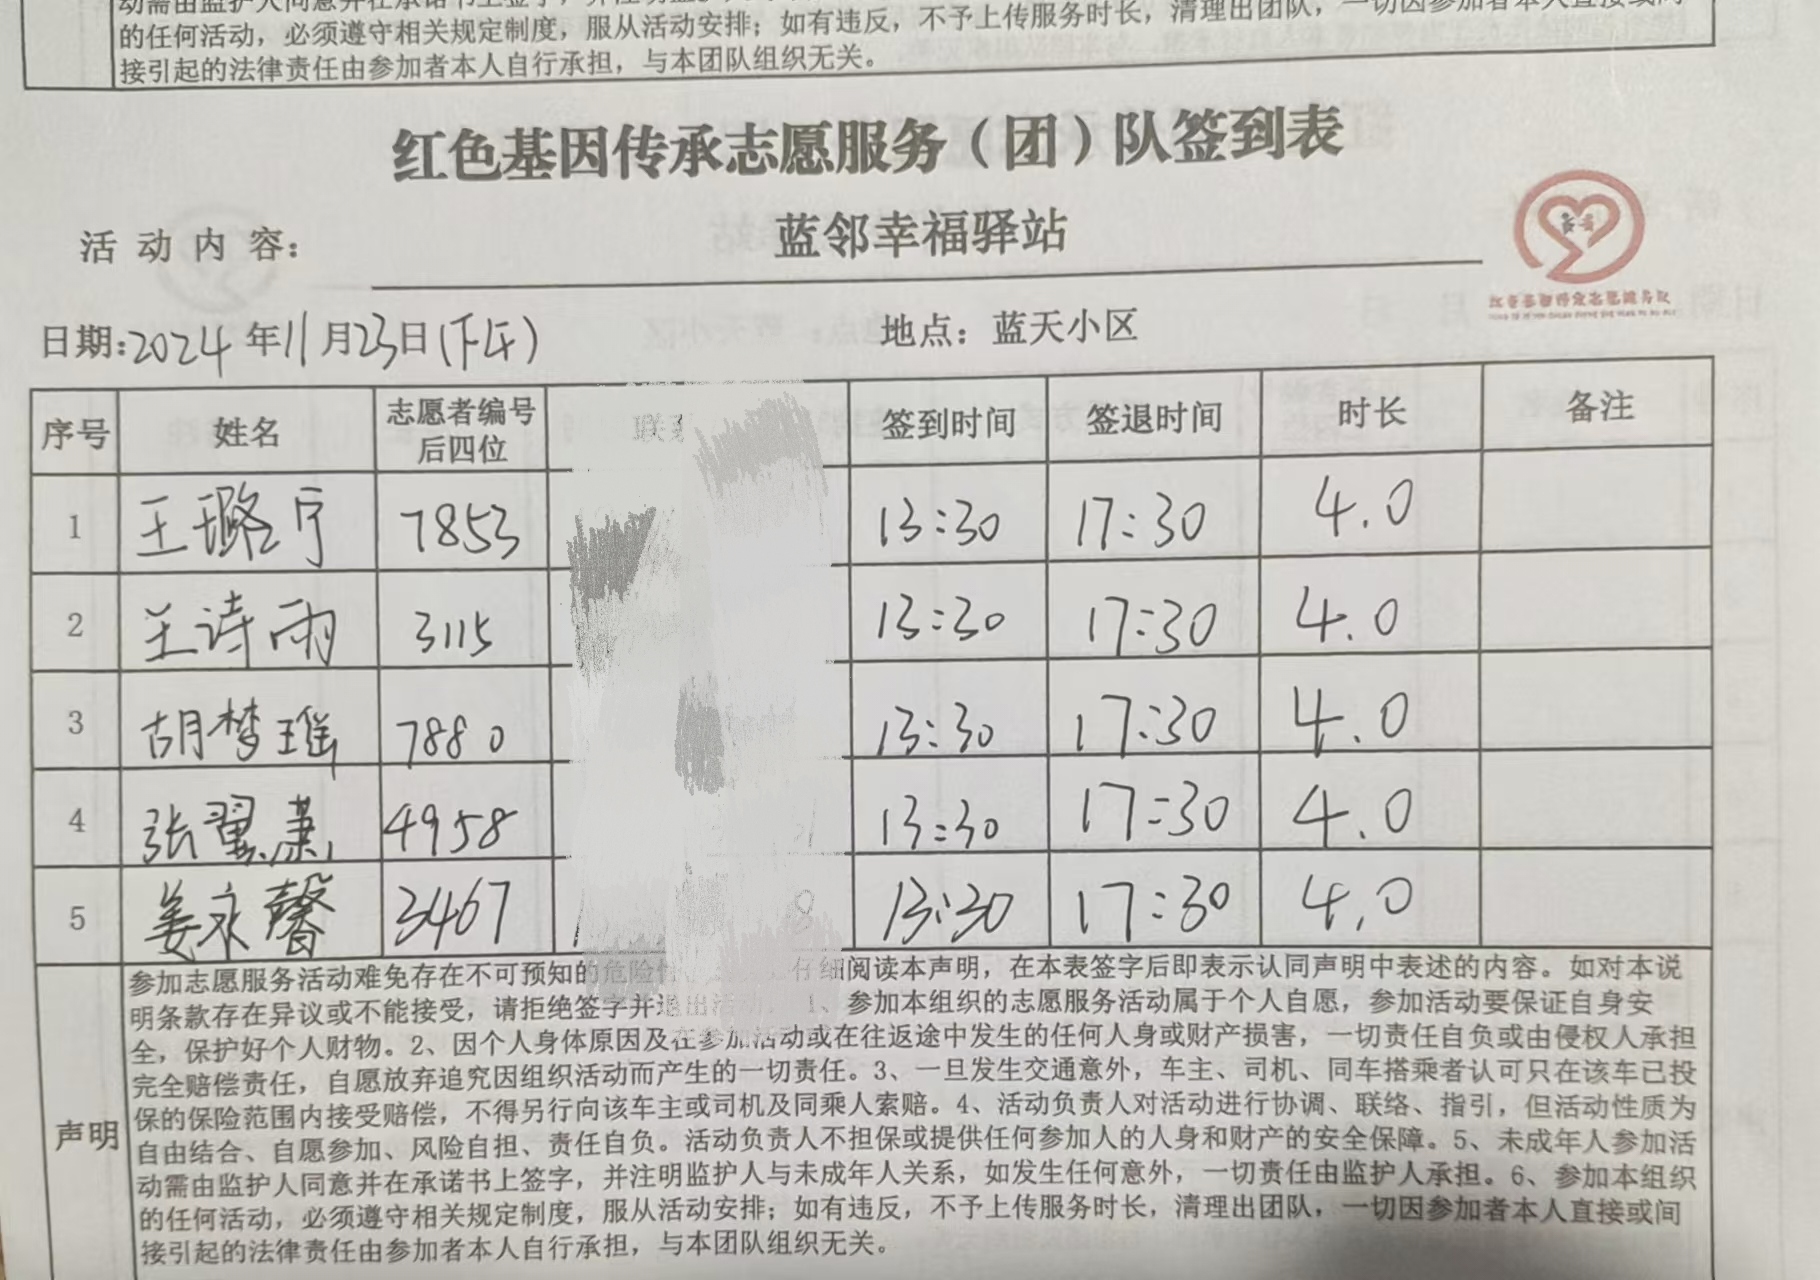 的任何活动，必须遵守相关规定制度，服从活动安排；如有违反，不予上传服务时长，清理出团队，一切因参加者本人直接或间
接引起的法律责任由参加者本人自行承担，与本团队组织无关。
红色基因传承志愿服务（团）队签到表
活动内容：蓝邻幸福驿站
日期：2024年11月23日(下午) 地点：蓝天小区
序号 姓名 志愿者编号后四位 签到时间 签退时间 时长 备注
1 王璐宁 7853 13:30 17:30 4.0
2 王诗雨 3115 13:30 17:30 4.0
3 胡梦瑶 7880 13:30 17:30 4.0
4 张翼潇 4958 13:30 17:30 4.0
5 姜永馨 3467 13:30 17:30 4.0
声明
参加志愿服务活动难免存在不可预知的危险性 仔细阅读本声明，在本表签字后即表示认同声明中表述的内容。如对本说
明条款存在异议或不能接受，请拒绝签字并退出活动。1、参加本组织的志愿服务活动属于个人自愿，参加活动要保证自身安
全，保护好个人财物。2、因个人身体原因及在参加活动或在往返途中发生的任何人身或财产损害，一切责任自负或由侵权人承担
完全赔偿责任，自愿放弃追究因组织活动而产生的一切责任。3、一旦发生交通意外，车主、司机、同车搭乘者认可只在该车已投
保的保险范围内接受赔偿，不得另行向该车主或司机及同乘人索赔。4、活动负责人对活动进行协调、联络、指引，但活动性质为
自由结合、自愿参加、风险自担、责任自负。活动负责人不担保或提供任何参加人的人身和财产的安全保障。5、未成年人参加活
动需由监护人同意并在承诺书上签字，并注明监护人与未成年人关系，如发生任何意外，一切责任由监护人承担。6、参加本组织
的任何活动，必须遵守相关规定制度，服从活动安排；如有违反，不予上传服务时长，清理出团队，一切因参加者本人直接或间
接引起的法律责任由参加者本人自行承担，与本团队组织无关。